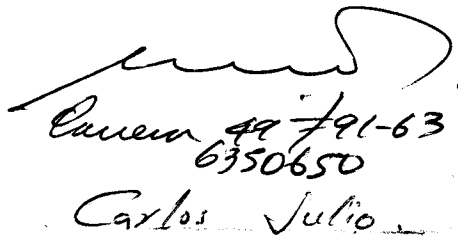 Carrera 49 #91-63
6350650
Carlos Julio.